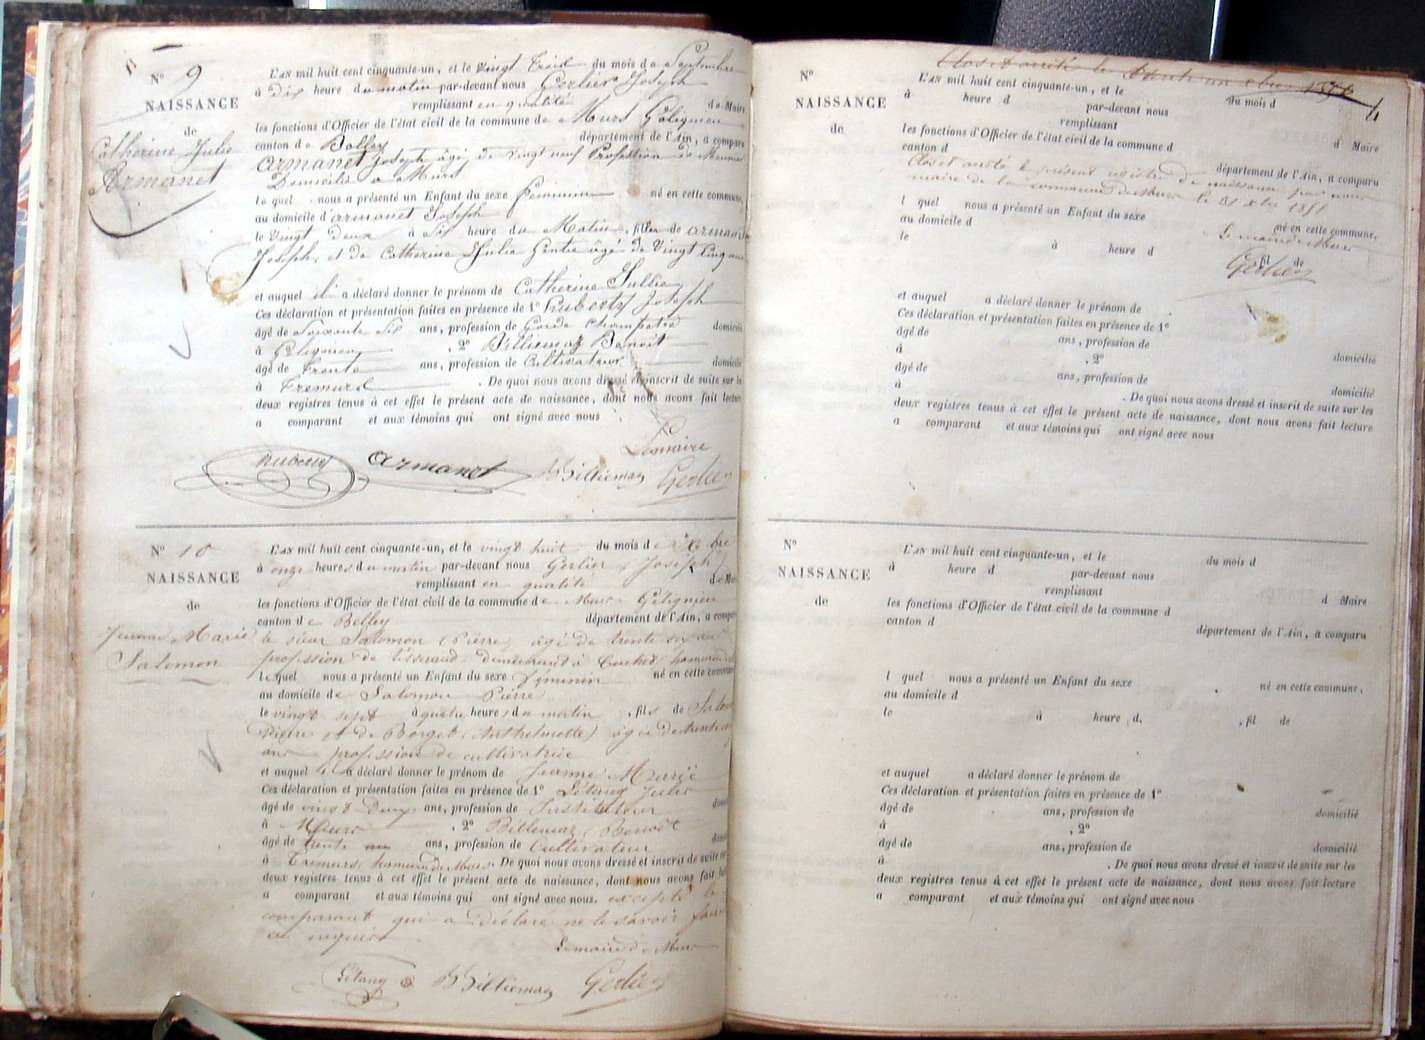 N° 9
NAISSANCE
de
Catherine Julie
Armanet
L'AN mil huit cent cinquante-un, et le vingt trois du mois de Septembre
à dix heure du matin par-devant nous Gerlier Joseph
remplissant en qualité de Maire
les fonctions d'Officier de l'état civil de la commune de Murs Gélignieu
canton de Belley département de l'Ain, a comparu
armanet Joseph âgé de vingt neuf Profession de
Domicilié a Murs
lequel nous a présenté un Enfant du sexe féminin né en cette commune,
au domicile d'armanet Joseph
le vingt deux à six heure du Matin, fille de armanet
Joseph, et de Catherine Julie Gentie âgée de vingt cinq ans
et auquel il a déclaré donner le prénom de Catherine Jullie
Ces déclaration et présentation faites en présence de 1° huberty Joseph
âgé de soixante six ans, profession de Garde champetre domicilié
à Gelignieu, 2° Billiemaz Benoît
âgé de trente ans, profession de Cultivateur domicilié
à Tremurs. De quoi nous avons dressé et inscrit de suite sur les
deux registres tenus à cet effet le présent acte de naissance, dont nous avons fait lecture
a comparant et aux témoins qui ont signé avec nous
Lemaire
huberty armanet Billiemaz Gerlier
N° 10
NAISSANCE
de
Jeanne Marie
Salomon
L'AN mil huit cent cinquante-un, et le vingt huit du mois de Xbre
à onze heures du matin par-devant nous Gerlier Joseph
remplissant en qualité de Maire
les fonctions d'Officier de l'état civil de la commune de Murs Gélignieu
canton de Belley département de l'Ain, a comparu
le sieur Salomon (Pierre) âgé de trente six ans
profession de tisserand demeurant à hameau de
lequel nous a présenté un Enfant du sexe féminin né en cette commune
au domicile de Salomon Pierre
le vingt sept à quatre heures du matin, fils de Salomon
Pierre et de Borget (Anthelmette) âgée de trente
ans profession de cultivatrice
et auquel il a déclaré donner le prénom de Jeanne Marie
Ces déclaration et présentation faites en présence de 1° Létang Jules
âgé de vingt deux ans, profession de Instituteur
à Murs, 2° Billiemaz (Benoît
âgé de trente un ans, profession de Cultivateur
à Tremurs hameau de Murs. De quoi nous avons dressé et inscrit de suite sur
deux registres tenus à cet effet le présent acte de naissance, dont nous avons fait
a comparant et aux témoins qui ont signé avec nous, excepté le
comparant qui a déclaré ne le savoir faire
de ce requis
Lemaire de Murs
Létang Billiemaz Gerlier
Clos et arrêté le trente un xbre 1851
4
N°
NAISSANCE
de
L'AN mil huit cent cinquante-un, et le du mois d
à heure d par-devant nous
remplissant
les fonctions d'Officier de l'état civil de la commune d d Maire
canton d département de l'Ain, a comparu
Clos et arrêté le présent registre de naissance par nous
maire de la commune de Murs le 31 xbre 1851
l quel nous a présenté un Enfant du sexe né en cette commune,
au domicile d
le à heure d fil de
Le maire de Murs
Gerlier
et auquel a déclaré donner le prénom de
Ces déclaration et présentation faites en présence de 1°
âgé de ans, profession de
à , 2° domicilié
âgé de ans, profession de
à domicilié
. De quoi nous avons dressé et inscrit de suite sur les
deux registres tenus à cet effet le présent acte de naissance, dont nous avons fait lecture
a comparant et aux témoins qui ont signé avec nous
N°
NAISSANCE
de
L'AN mil huit cent cinquante-un, et le du mois d
à heure d par-devant nous
remplissant
les fonctions d'Officier de l'état civil de la commune d d Maire
canton d
département de l'Ain, a comparu
l quel nous a présenté un Enfant du sexe , né en cette commune,
au domicile d
le à heure d , fil de
et auquel a déclaré donner le prénom de
Ces déclaration et présentation faites en présence de 1°
âgé de ans, profession de domicilié
à , 2°
âgé de ans, profession de domicilié
à . De quoi nous avons dressé et inscrit de suite sur les
deux registres tenus à cet effet le présent acte de naissance, dont nous avons fait lecture
a comparant et aux témoins qui ont signé avec nous